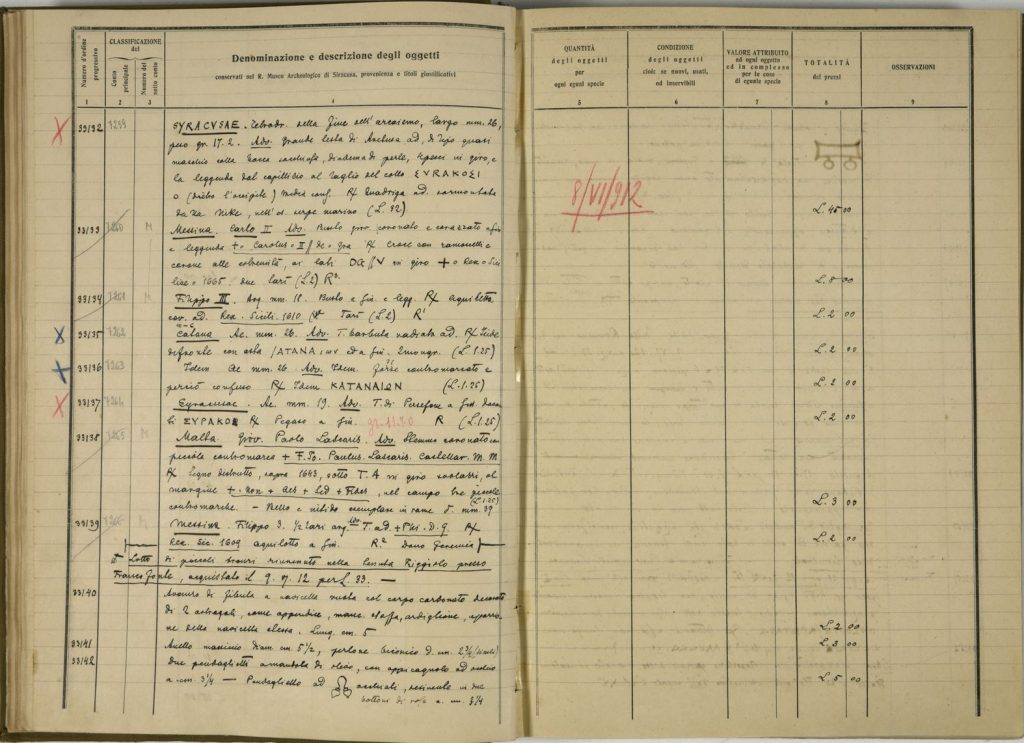 Numero d'ordine progressivo
CLASSIFICAZIONE del
Conto principale
Numero del sotto conto
Denominazione e descrizione degli oggetti
conservati nel R. Museo Archeologico di Siracusa, provenienza e titoli giustificativi
1 2 3 4
33132 7259 SYRACVSAE. Tetradr. della fine dell'arcaismo, largo mm. 26,
peso gr. 17.2. Adv. Grande testa di Arethusa ad. di tipo quasi
maschio colla bocca socchiusa, diadema di perle, 4 pesci in giro, e
la leggenda dal capillizio al taglio del collo ΣVRAKOΣI
O (dietro l'occipite) Quadriga ad. sormontata
da una Nike, nell'es. serpe marino (L. 32)
33133 7260 M Messina. Carlo II Adv. Busto coronato e corazzato
e leggenda + Carolus = II Croce con ramoscelli e
corone alle estremità, ai lati in giro + Rex = Sici
liae = 1665 due tarì (L.2) R3
33134 7261 M Filippo III. Arg. mm. 18. Busto a sin. e legg. Rx aquiletta
cor. ad. Rex. Sicili. 1610 Tarì (L.2) R1
33135 7262 Catana Ae. mm. 26. Adv. T. barbuta radiata ad. Rx Iside
di fronte con asta /ATANAIωN ed a sin. 2 mongr. (L. 1.25)
33136 7263 Idem Ae mm. 26. Adv. Idem. contromarcato e
perciò confuso Rx Idem KATANAIΩN (L. 1.25)
33137 7264 Syracusae. Ae. mm. 19. Adv. T. di Persefone a sin.
ΣYPAKOΣ Rx Pegaso a sin. gr. 11.70 R (L 1.25)
33138 7265 M Malta. Giov. Paolo Lascaris. Adv. Stemma coronato con
piccola contromarca + F. Io. Paulus. Lascaris. Castellar. M. M
Rx segno distrutto, sopra 1643, sotto T. 4 in giro
margine + Non + Aes + Sed + Fides, nel campo tre piccole
contromarche. - Bello e nitido esemplare in rame d. mm. 39
(L 1.25)
33139 7266 Messina. Filippo 3. ½ tarì arg. Adv. T. ad. + Phi. D. G Rx
Rex. Sic. 1609 aquilotto a sin. R.2
# Lotto di piccoli bronzi rinvenuto nella tenuta Riggiolo presso
Francofonte, acquistato il 9. VI. 12 per L. 83. —
33140 Avanzo di fibula a navicella vuota col corpo carbonato decorato
di 2 astragali, come appendice, manca staffa, ardiglione,
ne della navicella stessa. Lung. cm. 5
33141 Anello massimo diam cm. 5½, perlone biconico d. cm. 2¾
33142 due pendaglietti a mandola di con appiccagnolo ad occhio
a cm. 3¼ — Pendaglietto ad occhiali, desinente in due
bottoni a cm. 3¼
QUANTITÀ degli oggetti per ogni egual specie
CONDIZIONE degli oggetti cioè: se nuovi, usati, od inservibili
VALORE ATTRIBUITO ad ogni oggetto ed in complesso per le cose di eguale specie
TOTALITÀ dei prezzi
OSSERVAZIONI
5 6 7 8 9
8/VI/912
L. 45 00
L. 8 00
L. 2 00
L. 2 00
L. 2 00
L. 2 00
L. 3 00
L. 2 00
L. 2 00
L. 3 00
L. 5 00